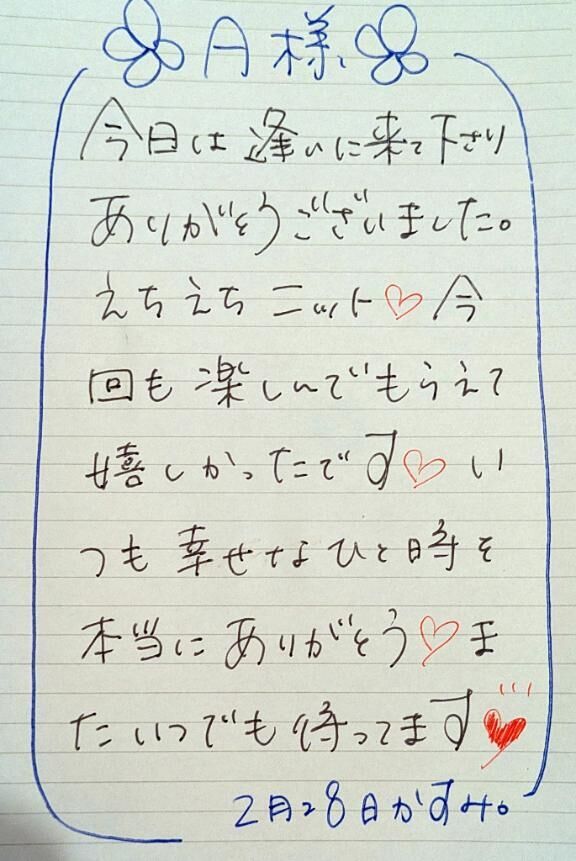 A様
今日は逢いに来て下さり
ありがとうございました。
えちえちニット♡今
回も楽しんでもらえて
嬉しかったです♡い
つも幸せなひと時を
本当にありがとう♡ま
たいつでも待ってます♥
2月28日かすみ。